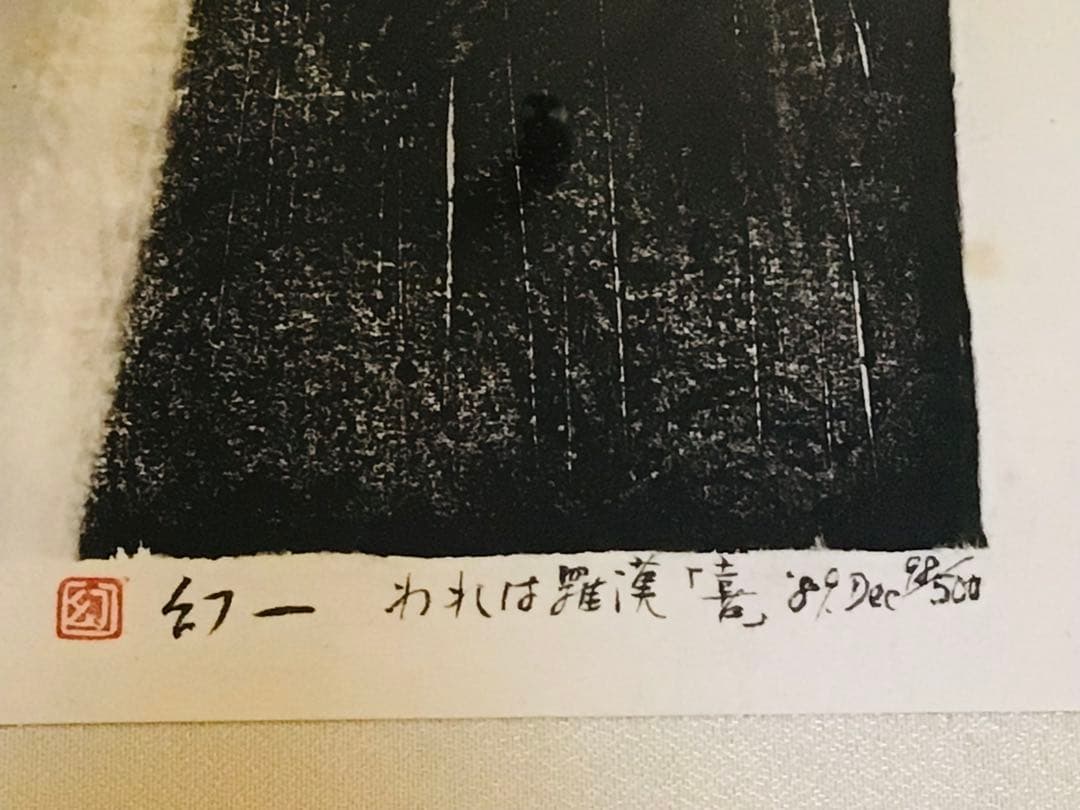 幻 幻一 われは羅漢「喜」 '89. Dec 98/500